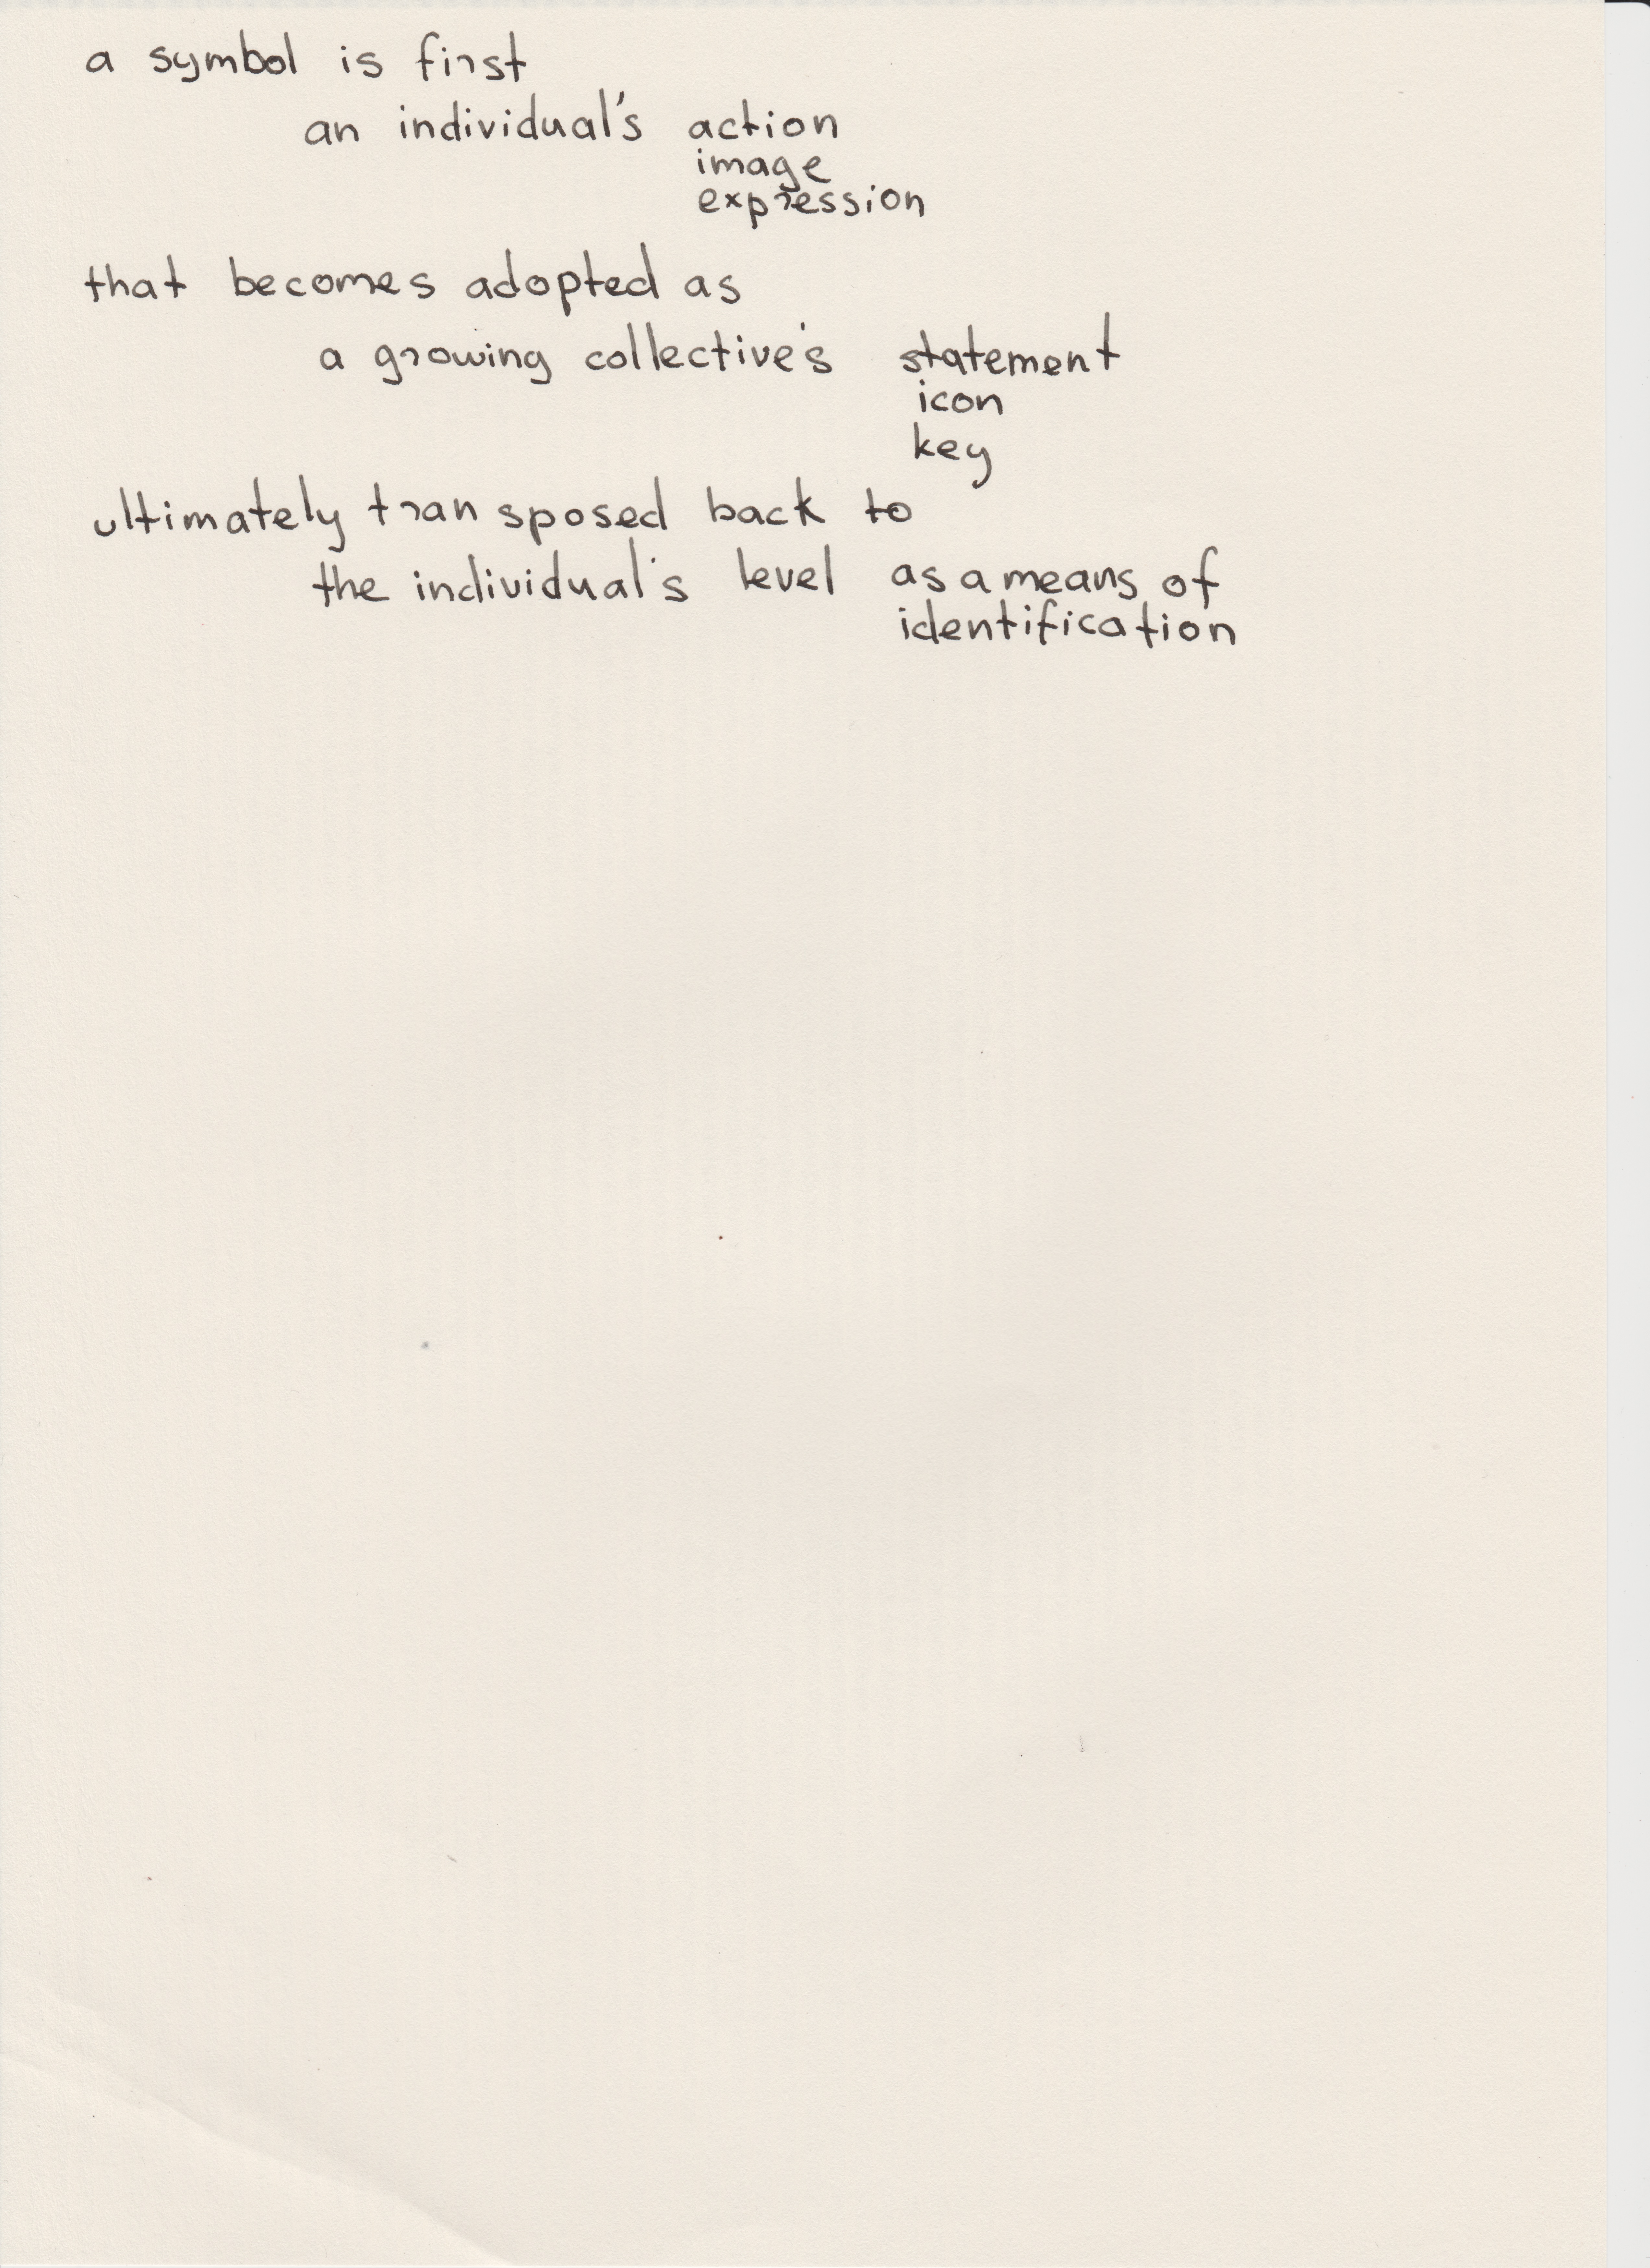 a symbol is first
an individual's action
image
expression
that becomes adopted as
a growing collective's statement
icon
key
ultimately transposed back to
the individual's level as a means of
identification